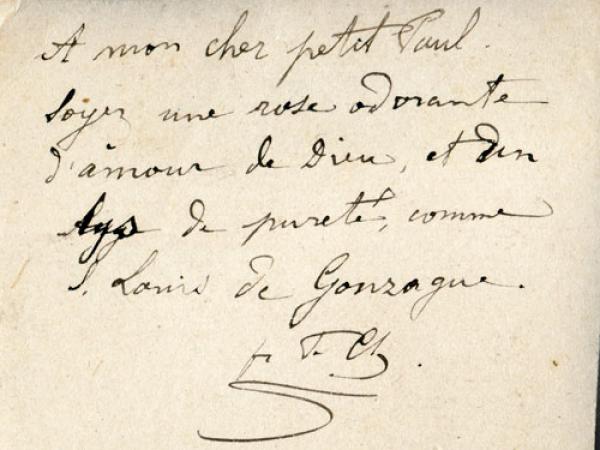 A mon cher petit Paul.
Soyez une rose odorante
d'amour de Dieu, et un
lys de pureté, comme
S. Louis de Gonzague.
f. T. Ch.